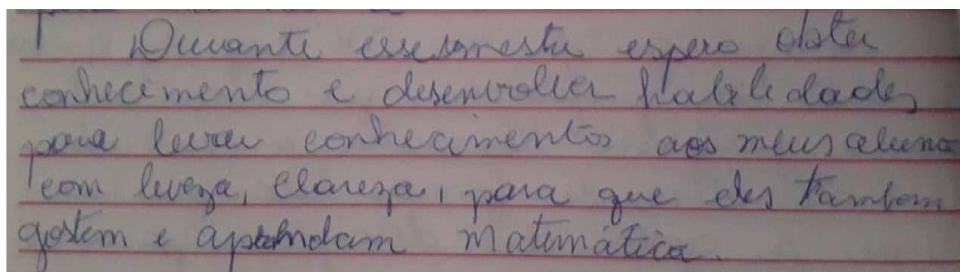 Durante esse semestre espero obter
conhecimento e desenvolver habilidades
para levar conhecimentos aos meus aluno
com leveza, clareza, para que eles tambem
gostem e aprendam matemática.